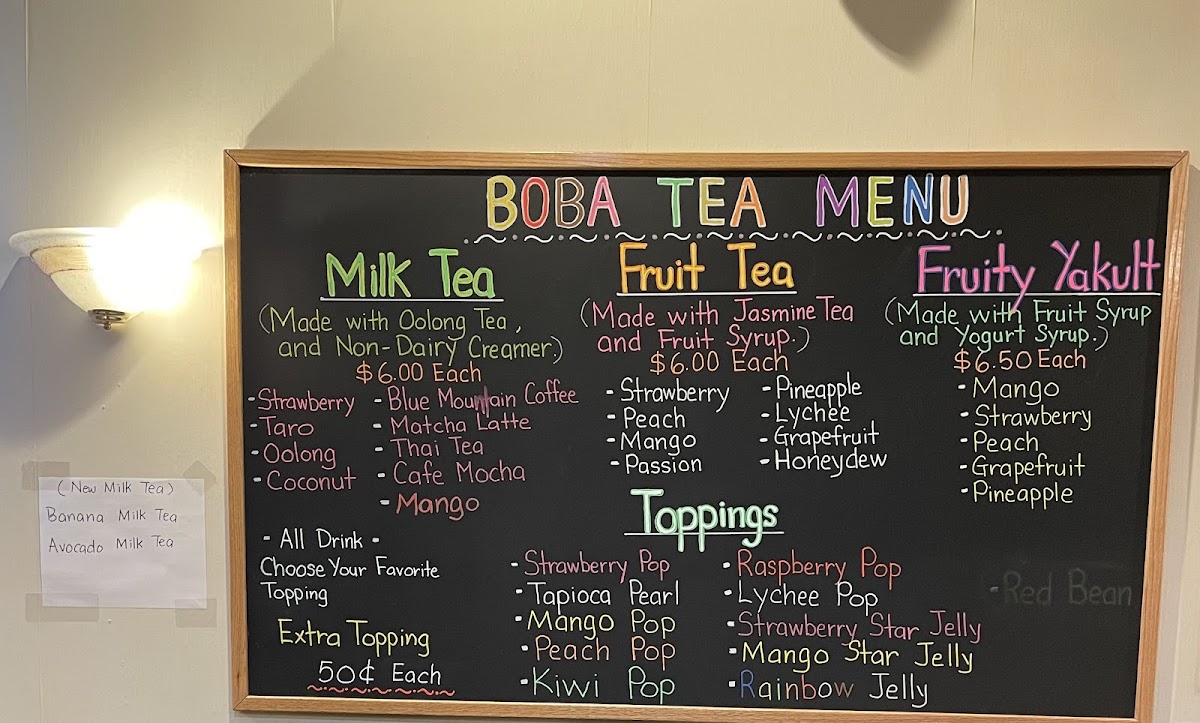 BOBA TEA MENU
Milk Tea
(Made with Oolong Tea,
and Non-Dairy Creamer.)
$6.00 Each
- Strawberry
- Taro
- Oolong
- Coconut
- Blue Mountain Coffee
- Matcha Latte
- Thai Tea
- Cafe Mocha
- Mango
Fruit Tea
(Made with Jasmine Tea
and Fruit Syrup.)
$6.00 Each
- Strawberry
- Peach
- Mango
- Passion
- Pineapple
- Lychee
- Grapefruit
- Honeydew
Fruity Yakult
(Made with Fruit Syrup
and Yogurt Syrup.)
$6.50 Each
- Mango
- Strawberry
- Peach
- Grapefruit
- Pineapple
- All Drink -
Choose Your Favorite
Topping
Extra Topping
50¢ Each
Toppings
- Strawberry Pop
- Tapioca Pearl
- Mango Pop
- Peach Pop
- Kiwi Pop
- Raspberry Pop
- Lychee Pop
- Strawberry Star Jelly
- Mango Star Jelly
- Rainbow Jelly
- Red Bean
(New Milk Tea)
Banana Milk Tea
Avocado Milk Tea